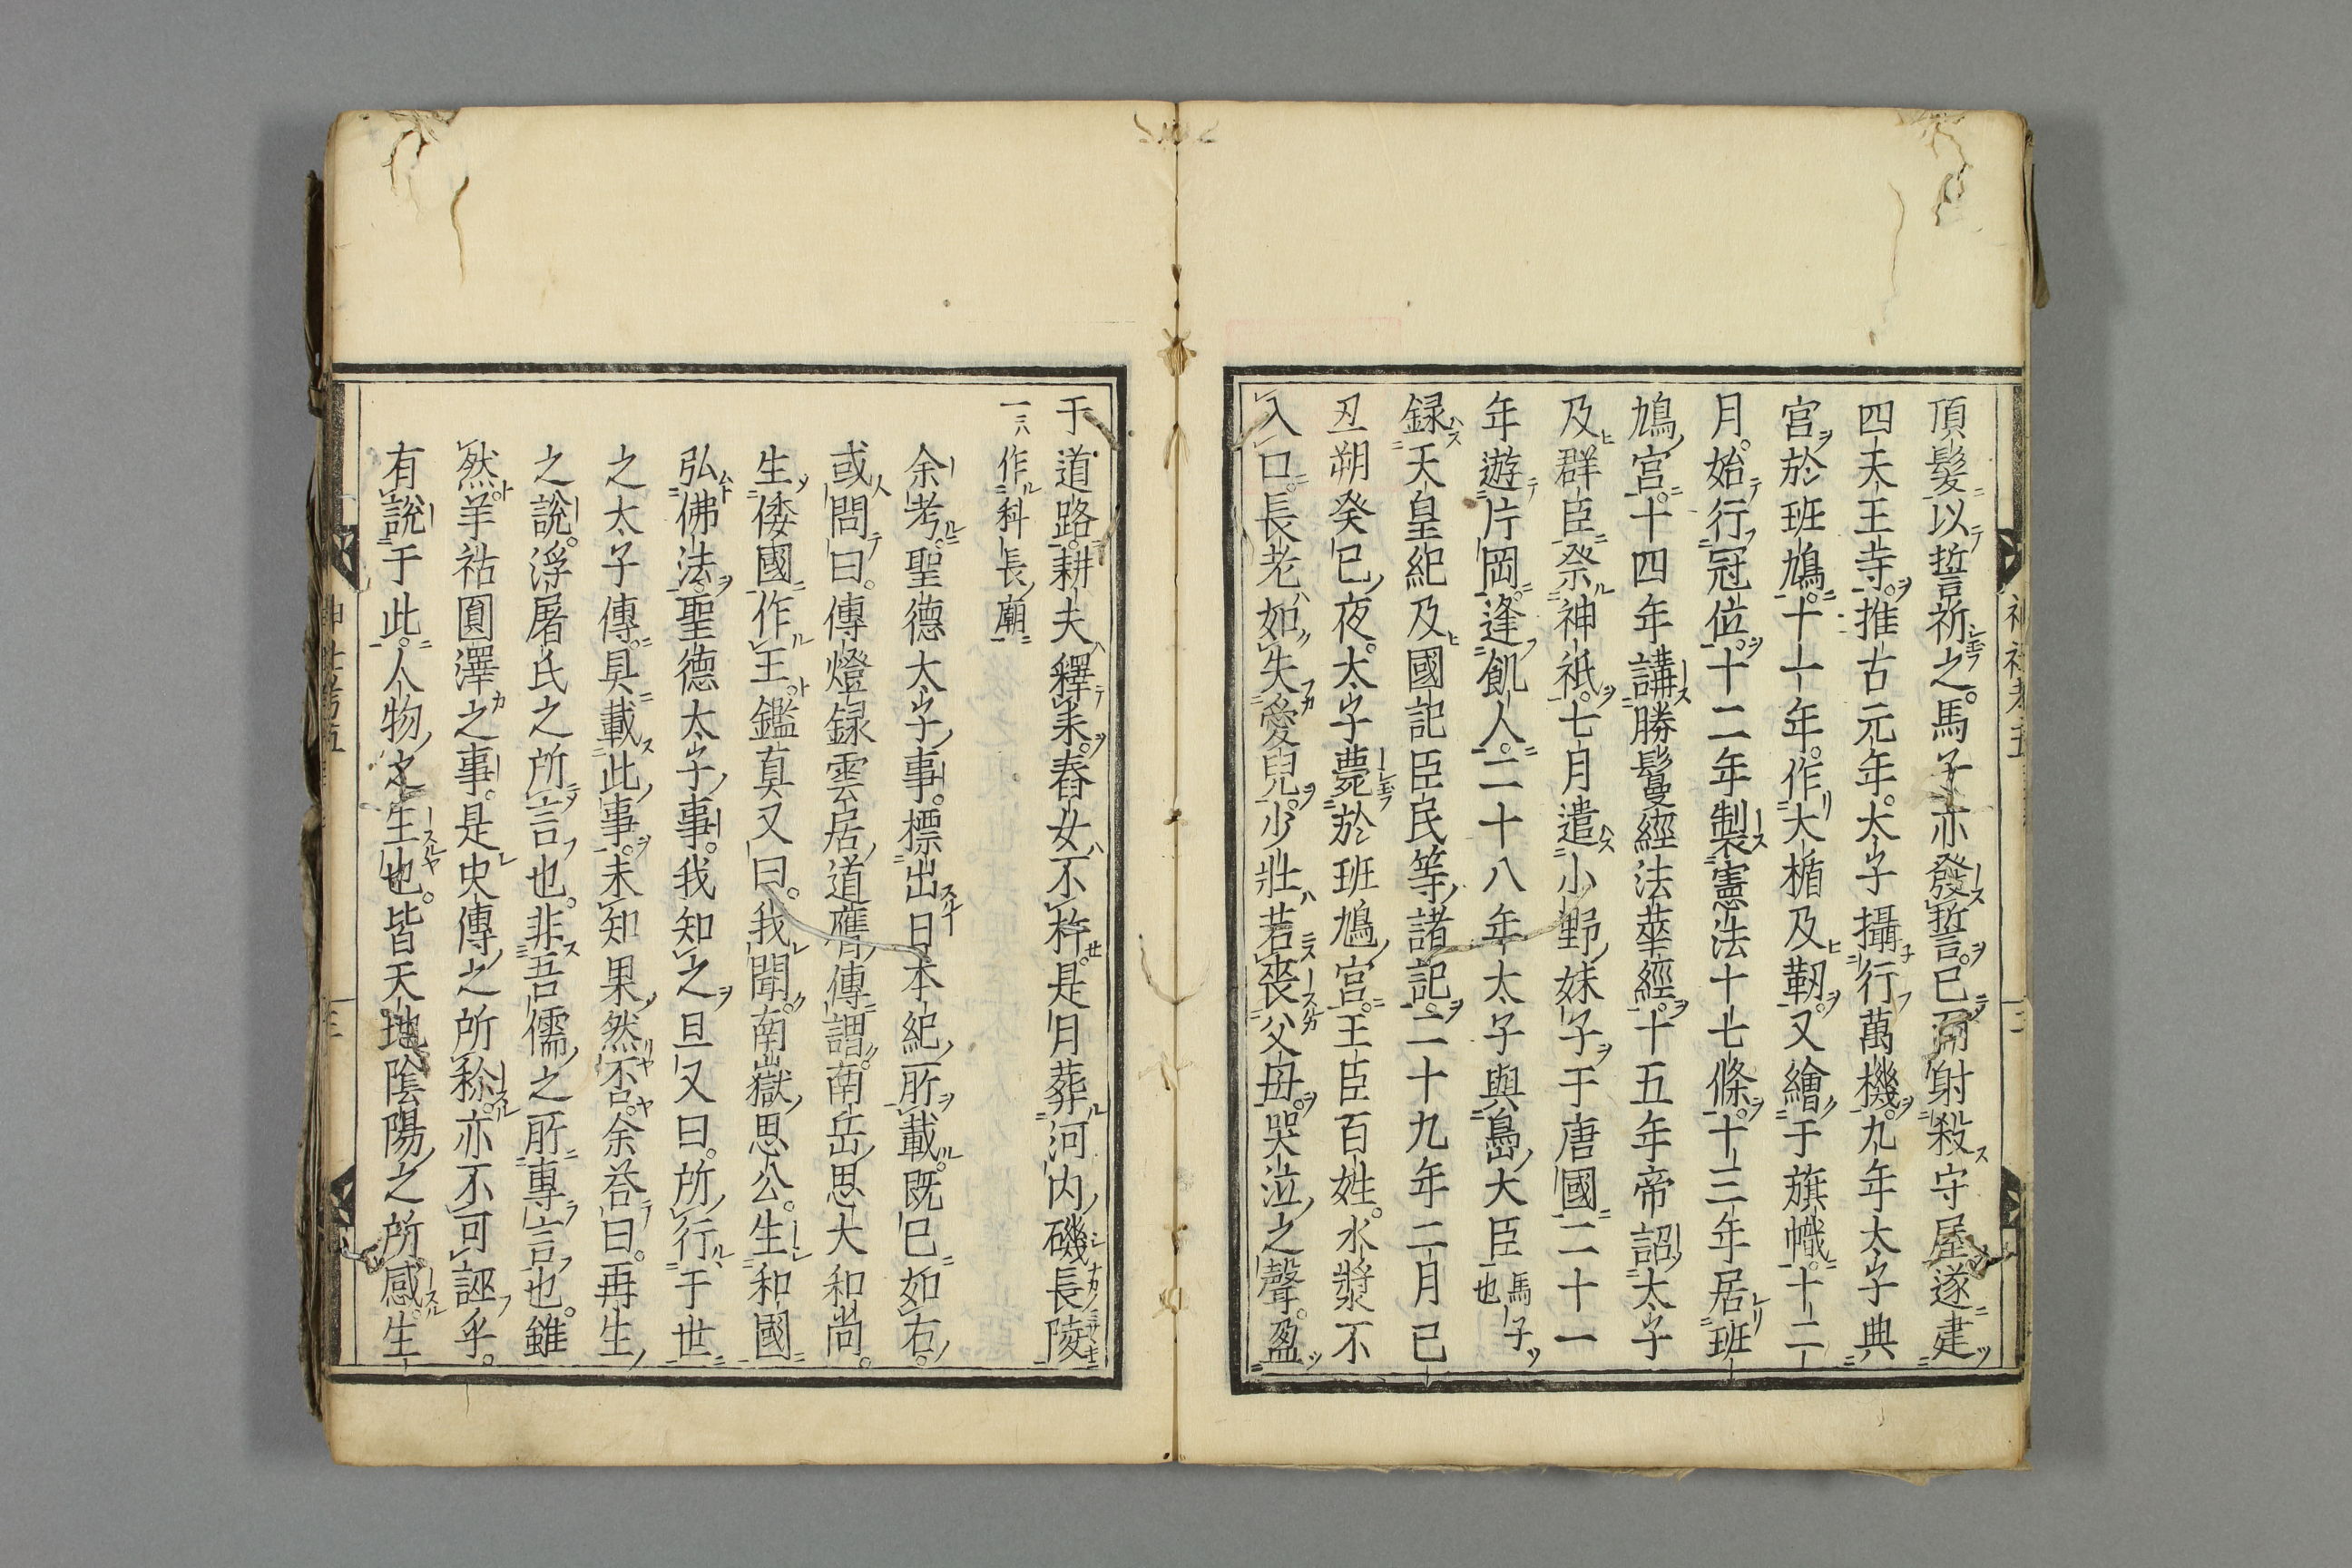 頂髮以誓祈之。馬子亦發誓。已而射殺守屋遂建
四天王寺。推古元年。太子攝行萬機。九年太子典
宮於班鳩。十一年。作大楯及靭。又繪于旗幟。十二
月。始行冠位。十二年製憲法十七條。十三年居班
鳩宮。十四年講勝鬘經法華經。十五年帝詔太子
及群臣祭神祇。七月遣小野妹子于唐國二十一
年遊片岡。逢飢人。二十八年太子與島大臣馬子也
録天皇紀及國記臣民等諸記。二十九年二月己
丑朔癸巳夜。太子薨於班鳩宮。王臣百姓。水漿不
入口。長老如失愛兒。少壯若喪父母。哭泣之聲。盈
于道路。耕夫釋耒。舂女不杵。是月葬河内磯長陵
一ニ作科長廟
余考。聖德太子事。標出日本紀所載。既已如右。
或問曰。傳燈録雲居道膺傳謂。南岳思大和尚。
生倭國作王。鑑真又曰。我聞。南嶽思公。生和國
弘佛法。聖德太子事。我知之。且又曰。所行于世
之太子傳。具載此事。未知果然否。余荅曰。再生
之說。浮屠氏之所言也。非吾儒之所專言也。雖
然羊祜圓澤之事。是史傳之所稱。亦不可誣乎。
有說于此。人物之生也。皆天地陰陽之所感。生